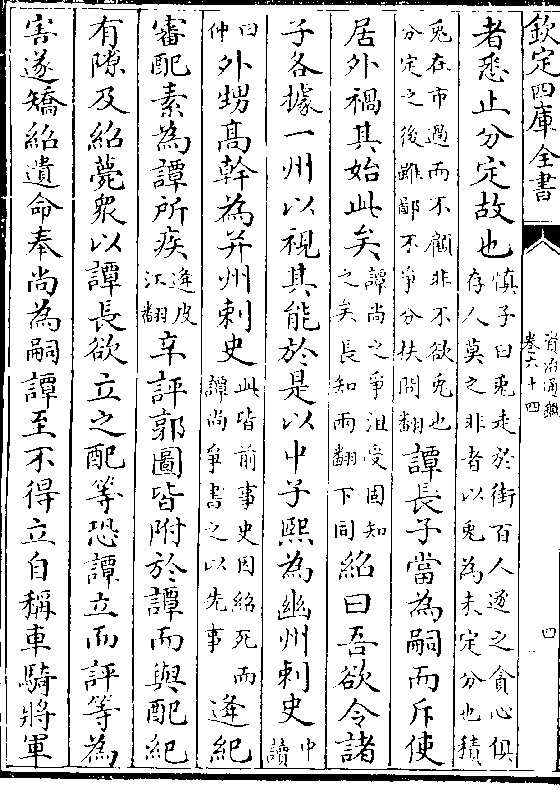 欽定四庫全書
資治通鑑
卷六十四
四
者悉止分定故也慎子曰兎走於街百人逐之貪心俱
存人莫之非者以兎為未定分也積
兎在市過而不顧非不欲兎也
分定之後雖鄙不爭分扶問翻譚長子當為嗣而斥使
居外禍其始此矣譚尚之爭沮受固知
之矣長知兩翻下同紹曰吾欲令諸
子各據一州以視其能於是以中子熙為幽州刺史中
讀
曰
仲外甥高幹為并州刺史此皆前事史因紹死而
譚尚爭書之以先事逄紀
審配素為譚所疾逄皮
江翻辛評郭圖皆附於譚而與配紀
有隙及紹薨衆以譚長欲立之配等恐譚立而評等為
害遂矯紹遺命奉尚為嗣譚至不得立自稱車騎將軍